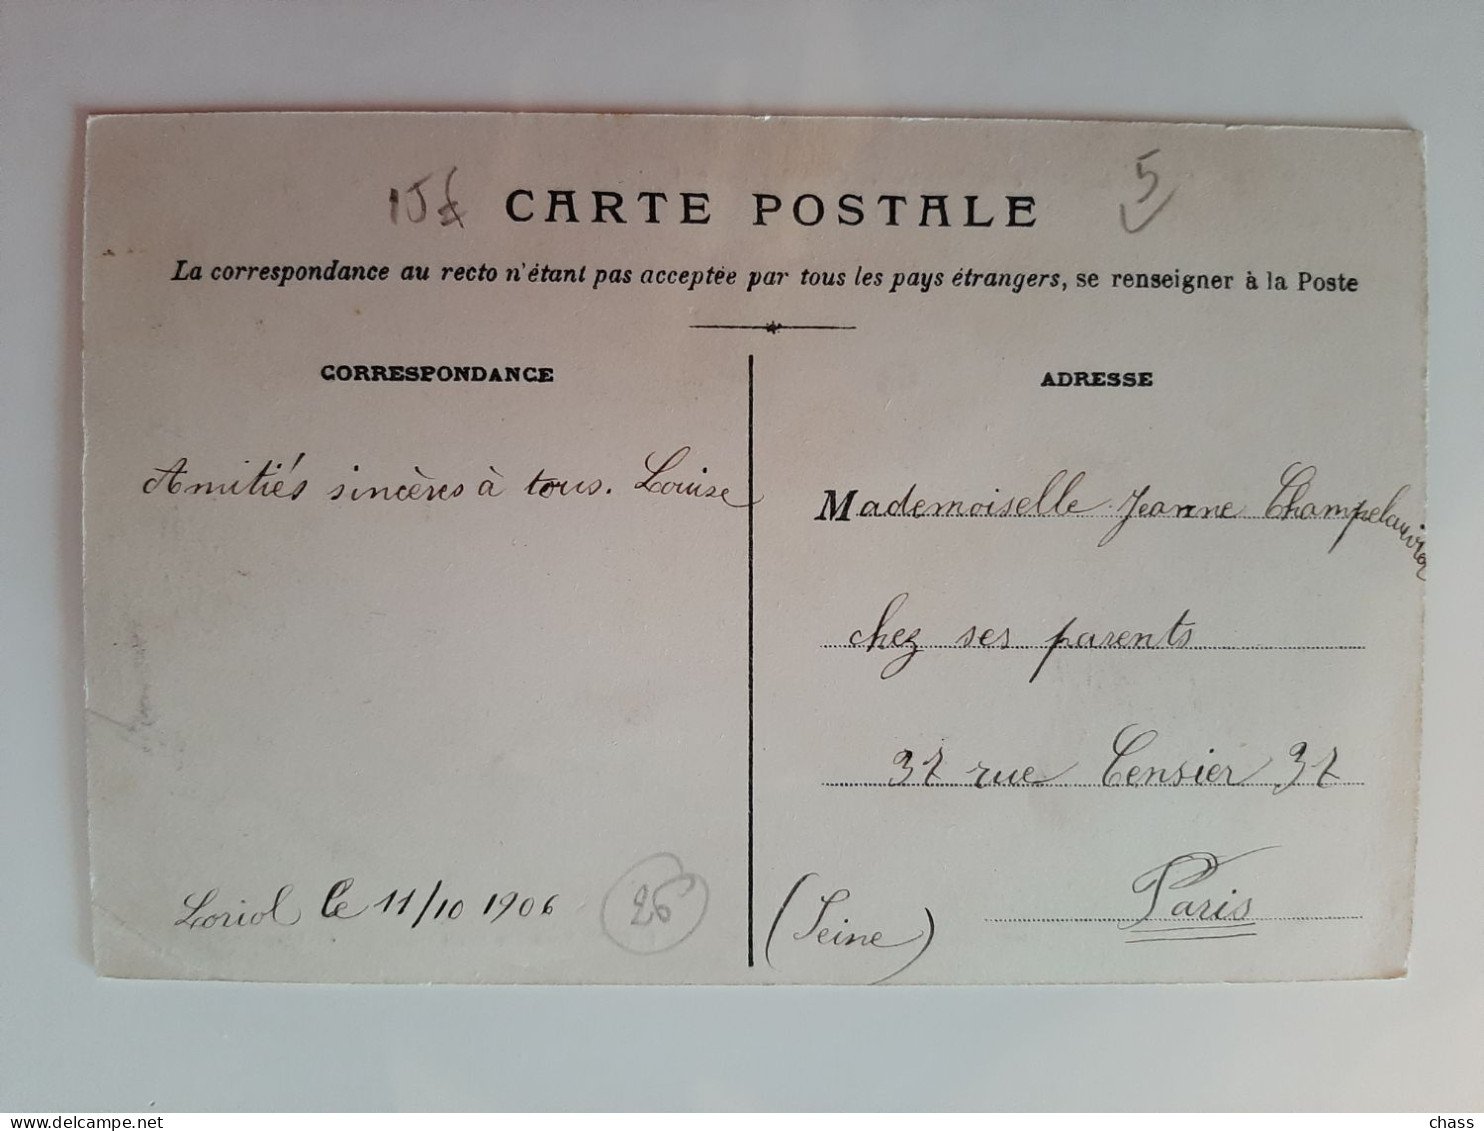 15£ CARTE POSTALE 5
La correspondance au recto n'étant pas acceptée par tous les pays étrangers, se renseigner à la Poste
CORRESPONDANCE
Amitiés sincères à tous. Louise
Loriol le 11/10 1906
26
ADRESSE
Mademoiselle Jeanne
chez ses parents
37 rue Censier 37
Paris
(Seine)
delcampe.net
chass